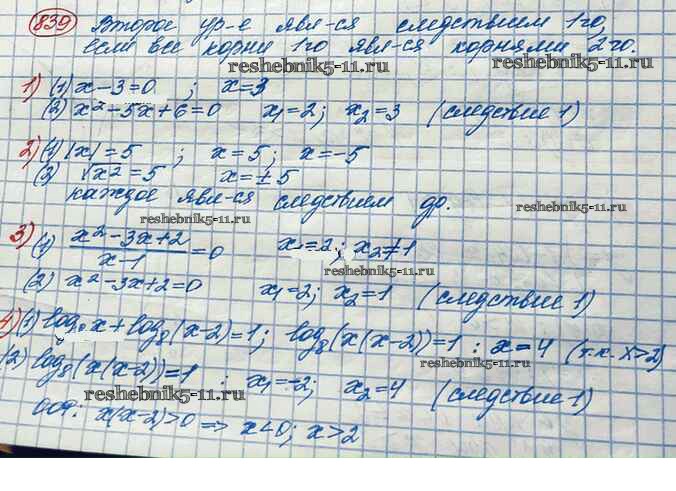 839 Второе ур-е явл-ся следствием 1го,
если все корни 1го явл-ся корнями 2го.
reshebnik5-11.ru
1) (1) x-3=0 ; x=3
(2) x²-5x+6=0 x₁=2; x₂=3 (следствие 1)
reshebnik5-11.ru
2) (1) |x|=5 ; x=5; x=-5
(2) √x²=5 x=±5
каждое явл-ся следствием др.
reshebnik5-11.ru
3) (1) (x²-3x+2)/(x-1)=0 x=2; x₂≠1
reshebnik5-11.ru
(2) x²-3x+2=0 x₁=2; x₂=1 (следствие 1)
4) (1) log₈x+log₈(x-2)=1; log₈(x(x-2))=1 : x=4 (т.к. x>2)
reshebnik5-11.ru
(2) log₈(x(x-2))=1 : x₁=-2; x₂=4 (следствие 1)
reshebnik5-11.ru
ООФ: x(x-2)>0 => x<0; x>2